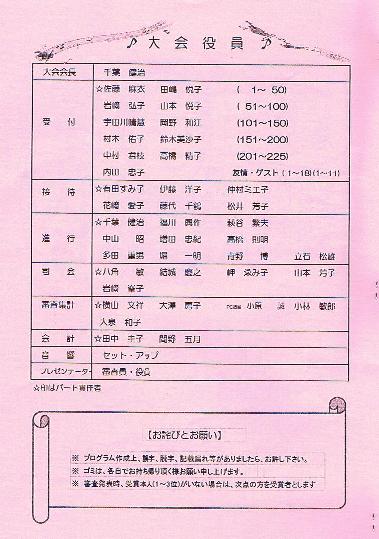 ♪ 大会役員 ♪
大会会長 千葉 健治
受付 ☆佐藤 麻衣 田嶋 悦子 ( 1〜 50)
岩崎 弘子 山本 悦子 ( 51〜100)
宇田川 岡野 和江 (101〜150)
村木 佑子 鈴木美沙子 (151〜200)
中村 君枝 高橋 精子 (201〜225)
内田 忠子 友情・ゲスト (1〜18)(1〜11)
接待 ☆有田すみ子 伊藤 洋子 仲村ミエ子
花崎 愛子 藤代 千鶴 松井 芳子
進行 ☆千葉 健治 福川 繁夫
中山 昭 増田 忠紀 高橋 則明
多田 堀 一明 青野 博 立石 松雄
司会 ☆八角 敏 結城 岬 ゑみ子 山本 芳子
岩崎 峯子
審査集計 ☆横山 文祥 大澤 房子 小原 誠 小林 敏郎
大泉 和子
会計 ☆田中 圭子 間野 五月
音響 セット・アップ
プレゼンテーター 審査員・役員
☆印はパート責任者
【お詫びとお願い】
※ プログラム作成上、誤字、脱字、記載漏れ等がありましたら、お許し下さい。
※ ゴミは、各自でお持ち帰り頂く様お願い申し上げます。
※ 審査発表時、受賞本人(1〜3位)がいない場合は、次点の方を受賞者とします